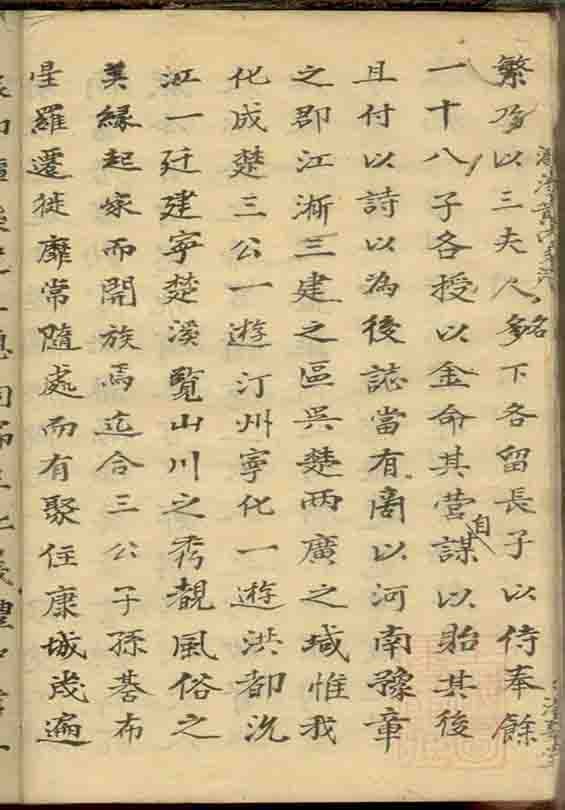 繁乃以三夫人名下各留長子以侍奉餘
一十八子各授以金命其自營謀以貽其後
且付以詩以為後誌當有啇以河南豫章
之郡江淅三建之區吳楚兩廣之域惟我
化成楚三公一遊汀州寧化一遊洪都沉
江一廷建寧楚溪覽山川之秀觀風俗之
美緣起家而開族焉迄合三公子孫碁布
星羅遷徙靡常隨處而有聚住康城茂遍